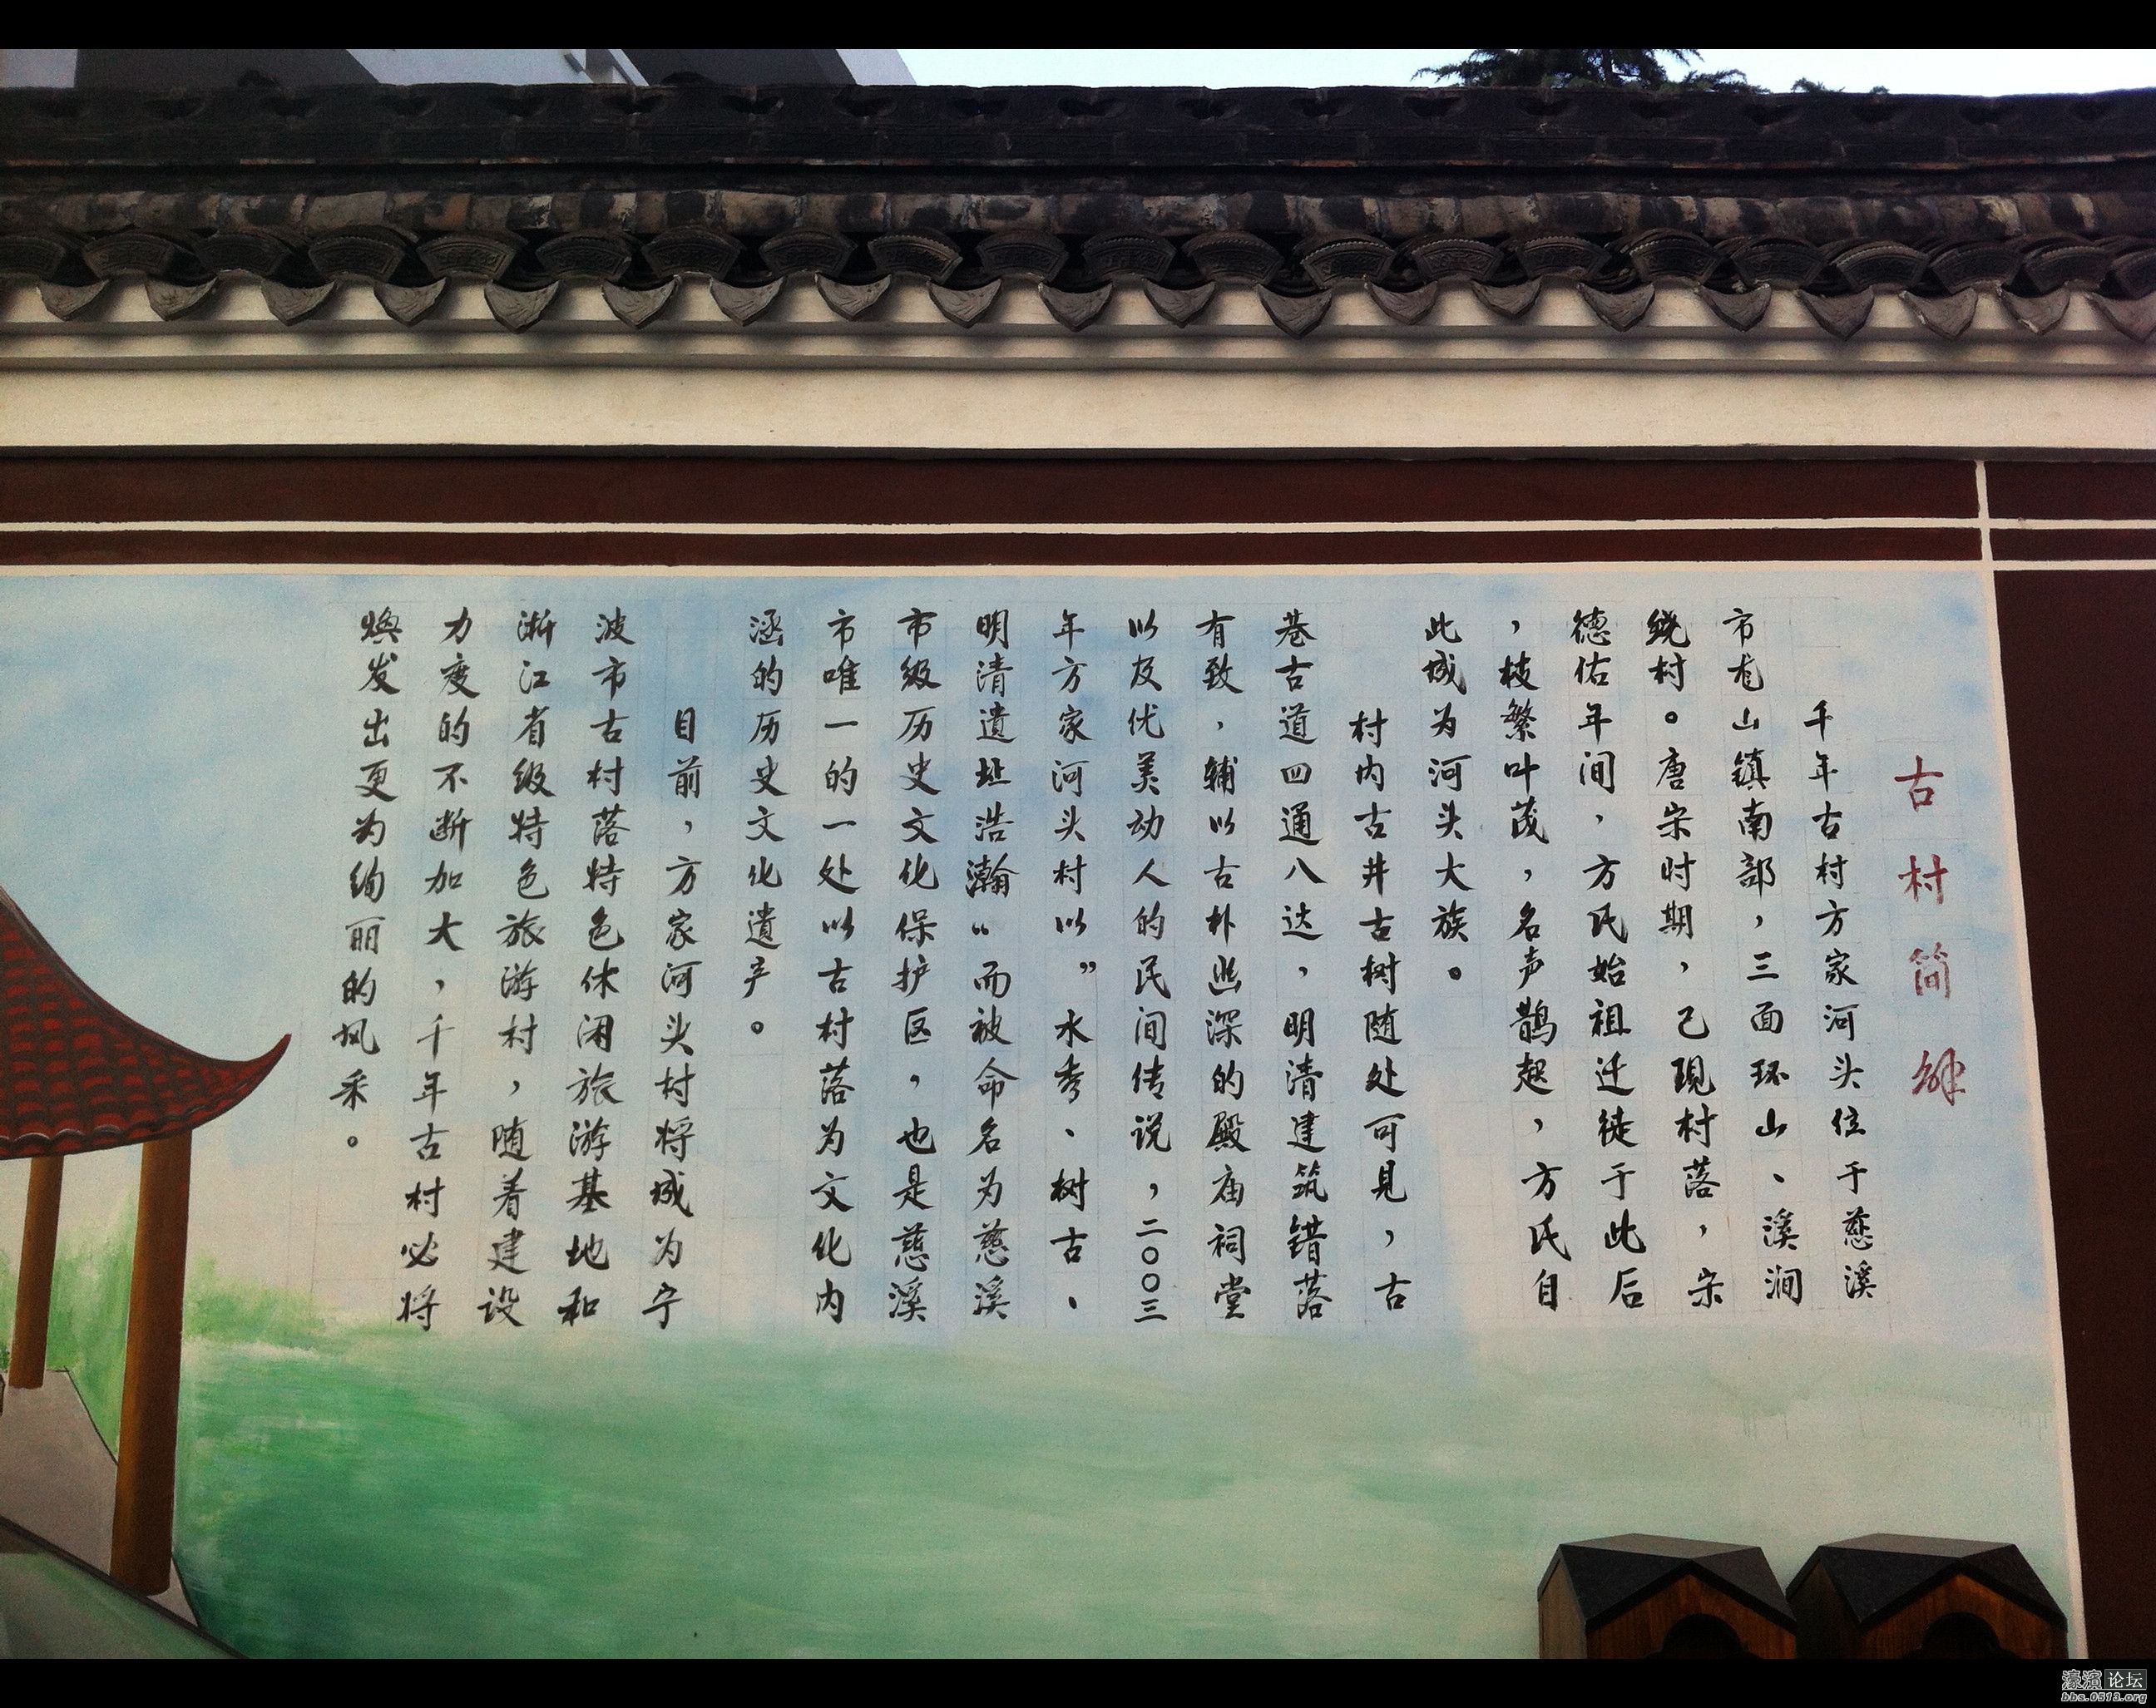 古村简介
千年古村方家河头位于慈溪
市龙山镇南部，三面环山、溪涧
绕村。唐宋时期，已现村落，宋
德佑年间，方氏始祖迁徒于此后
，枝繁叶茂，名声鹊起，方氏自
此成为河头大族。
村内古井古树随处可见，古
巷古道四通八达，明清建筑错落
有致，辅以古朴幽深的殿庙祠堂
以及优美动人的民间传说，二〇〇三
年方家河头村以”水秀、树古、
明清遗址浩瀚“而被命名为慈溪
市级历史文化保护区，也是慈溪
市唯一的一处以古村落为文化内
涵的历史文化遗产。
目前，方家河头村将成为宁
波市古村落特色休闲旅游基地和
浙江省级特色旅游村，随着建设
力度的不断加大，千年古村必将
焕发出更为绚丽的风采。
濠滨论坛
bbs.0513.org